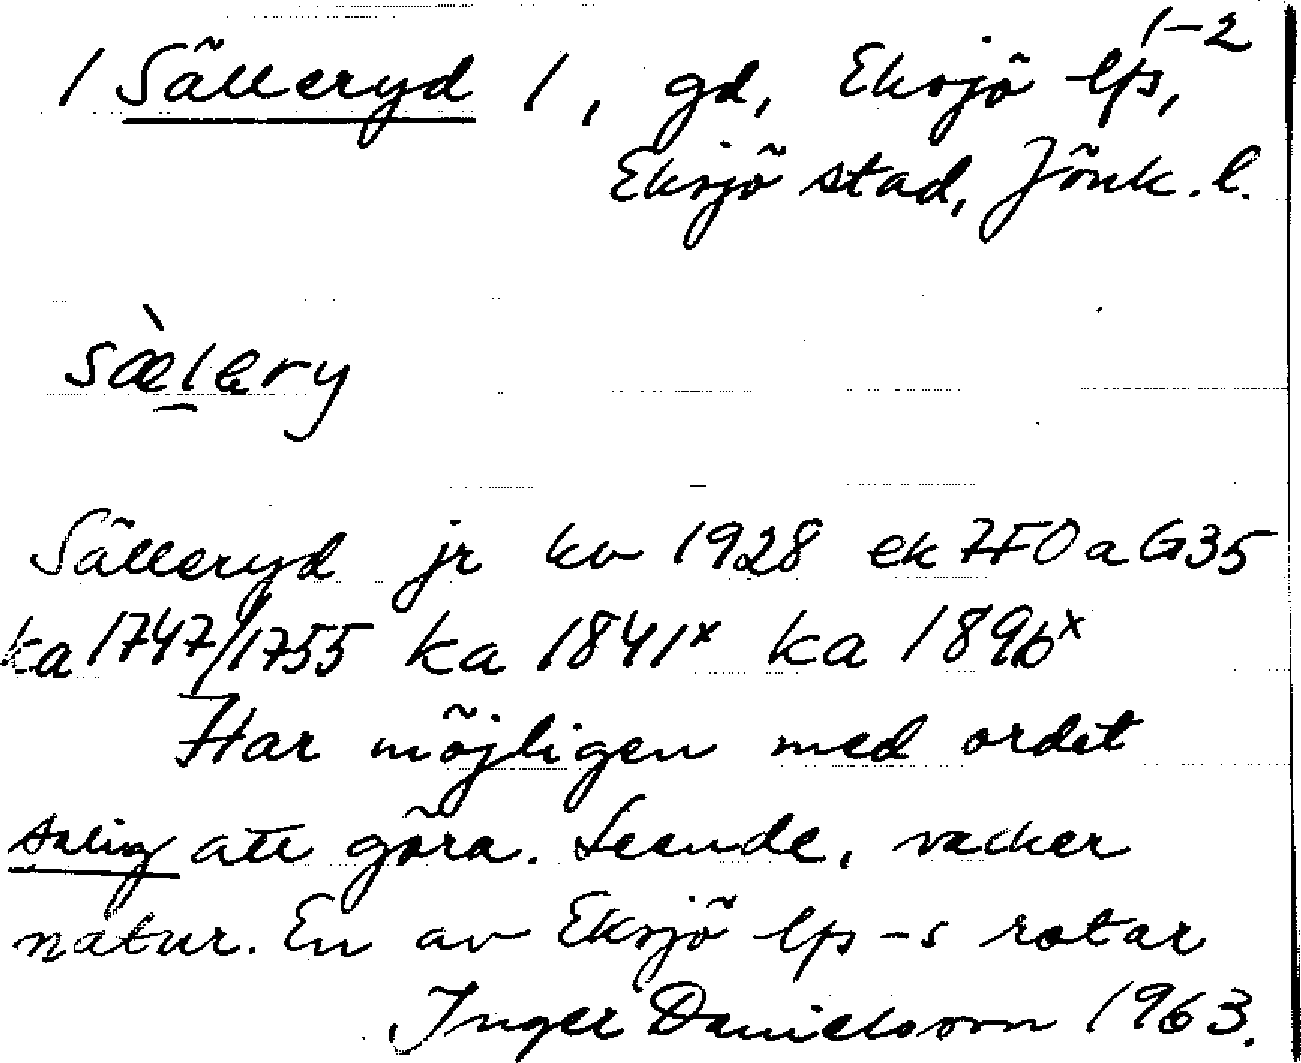 1-2
/ Sälleryd /, gd, Eksjö lfs,
Eksjö stad, Jönk. l.
sæ̀lery
Sälleryd jr kv 1928 ek 7F0aG35
ka 1747/1755 ka 1841x ka 1896x
Har möjligen med ordet
salig att göra. Leende, vacker
natur. En av Eksjö lfs-s rotar
Inger Danielsson 1963.